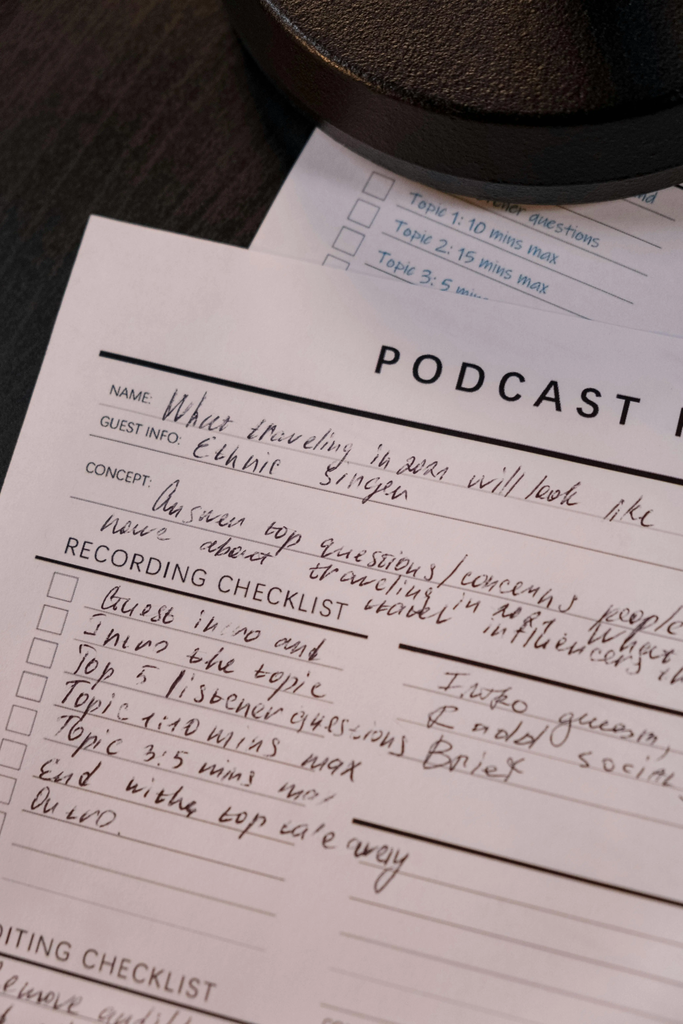 questions
Topic 1: 10 mins max
Topic 2: 15 mins max
Topic 3: 5
PODCAST
NAME: What traveling in 2021 will look like
GUEST INFO: Ethnie Singen
CONCEPT: Answer top questions/concerns people
have about traveling in 2021 What
travel influencers
RECORDING CHECKLIST
Guest intro and
Intro the topic
Top 5 listener questions
Topic 1:10 mins max
Topic 3:5 mins max
End witha top take away
Outro.
social
Brief
EDITING CHECKLIST